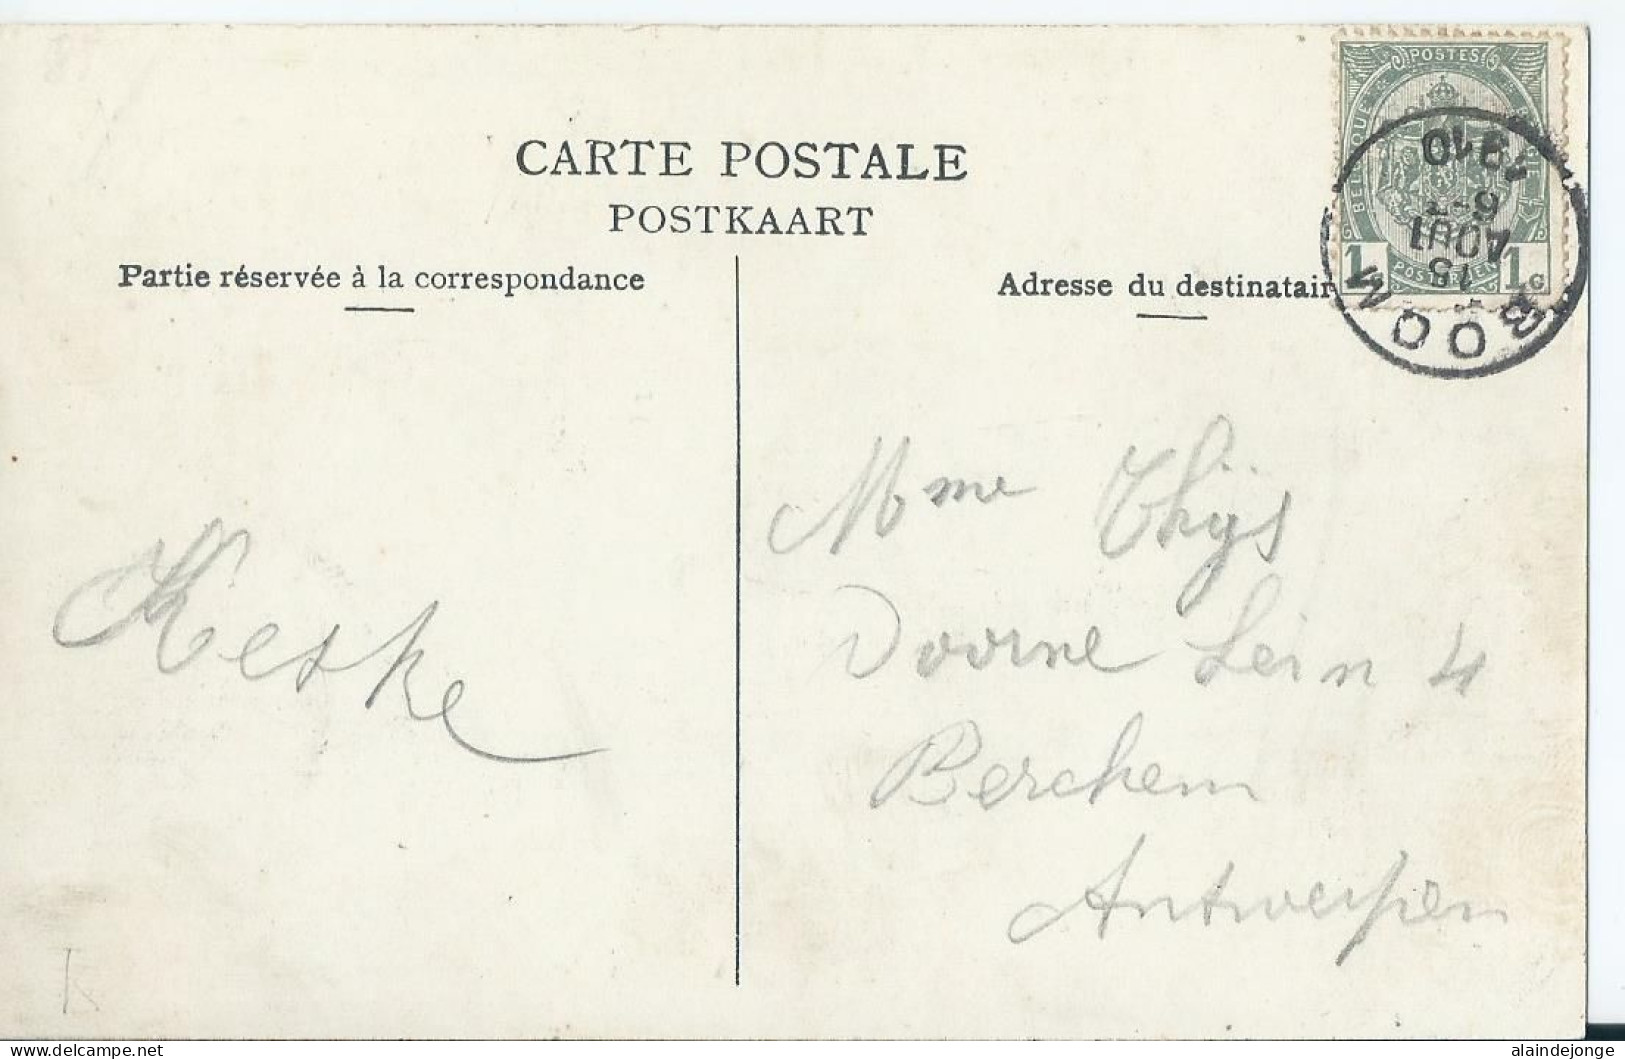 CARTE POSTALE
POSTKAART
Partie réservée à la correspondance
Adresse du destinatair
POSTES
BELGIQUE
1
POSTERIJEN
1c
BOOM
15
AOUT
6-7
1910
Mme Thÿs
Doorne Lein 4
Berchem
Antwerpen
Keske
K
www.delcampe.net
alaindejonge